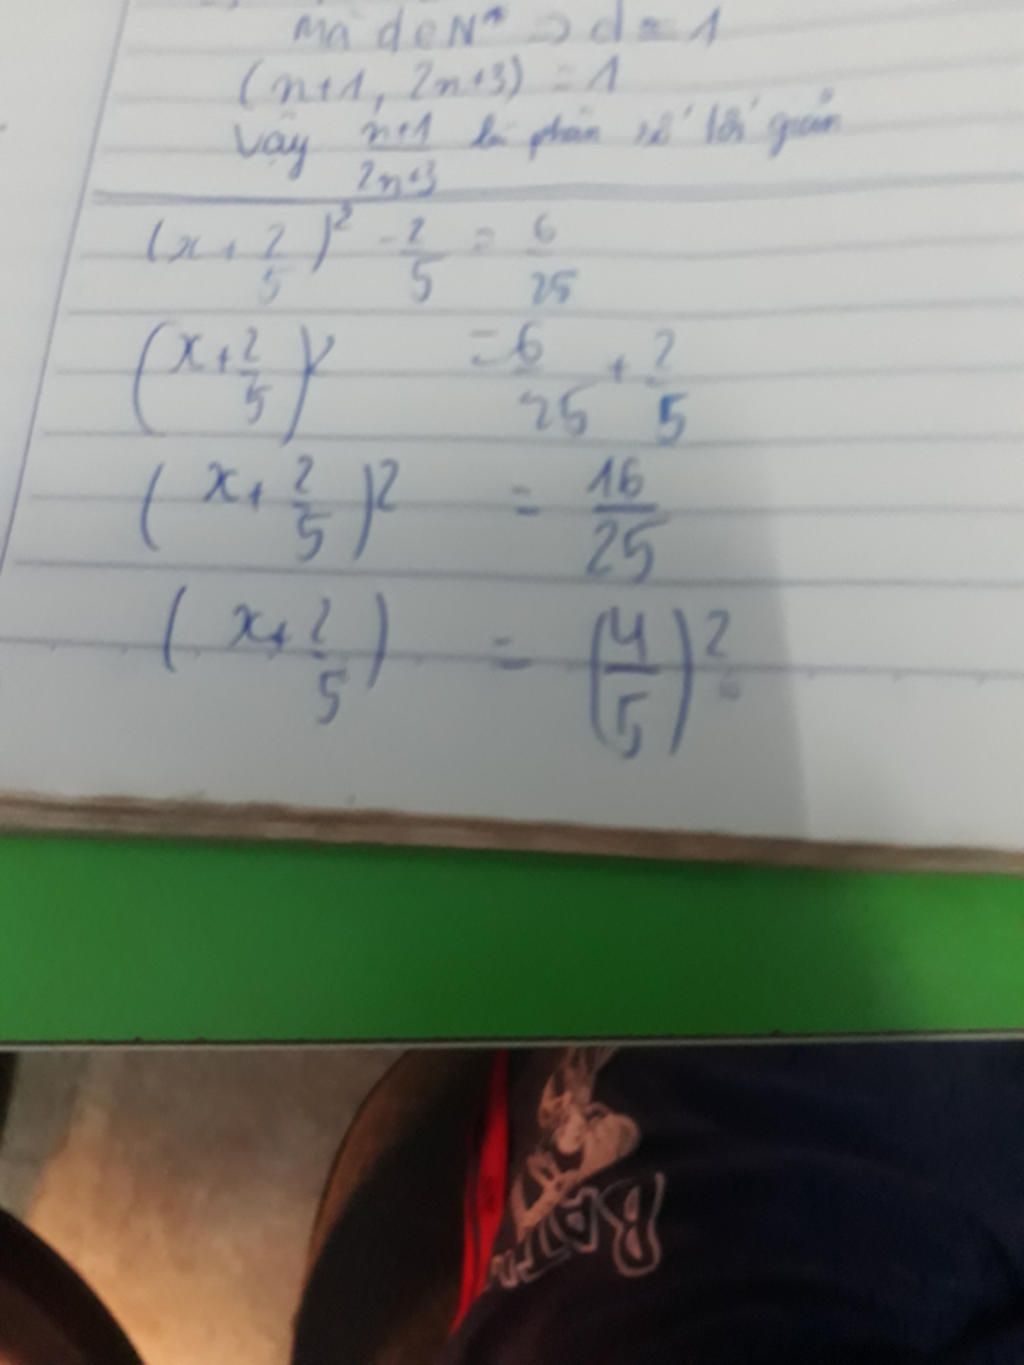 Mà d ∈ N* => d = 1
(n+1, 2n+3) = 1
Vậy n+1/2n+3 là phân số tối giản
(x + 2/5)² - 2/5 = 6/25
(x + 2/5)² = 6/25 + 2/5
(x + 2/5)² = 16/25
(x + 2/5) = (4/5)²